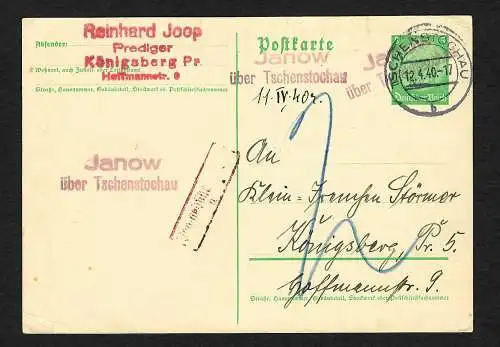 Reinhard Joop
Absender:
Prediger
Königsberg Pr
Hoffmannstr. 9
Wohnort, auch Zustell- oder Leitpostamt
Straße, Hausnummer, Gebäudeteil, Stockwerk od. Postschließfachnummer
Postkarte
Janow
über Tschenstochau
Janow
über Tschenstochau
TSCHENSTOCHAU
12.4.40-17
b
Deutsches Reich
11. IV. 40.
Janow
über Tschenstochau
An
Klein-
Störmer
Königsberg, Pr. 5.
Hoffmannstr. 9.
Straße, Hausnummer, Gebäudeteil, Stockwerk oder Postschließfachnummer